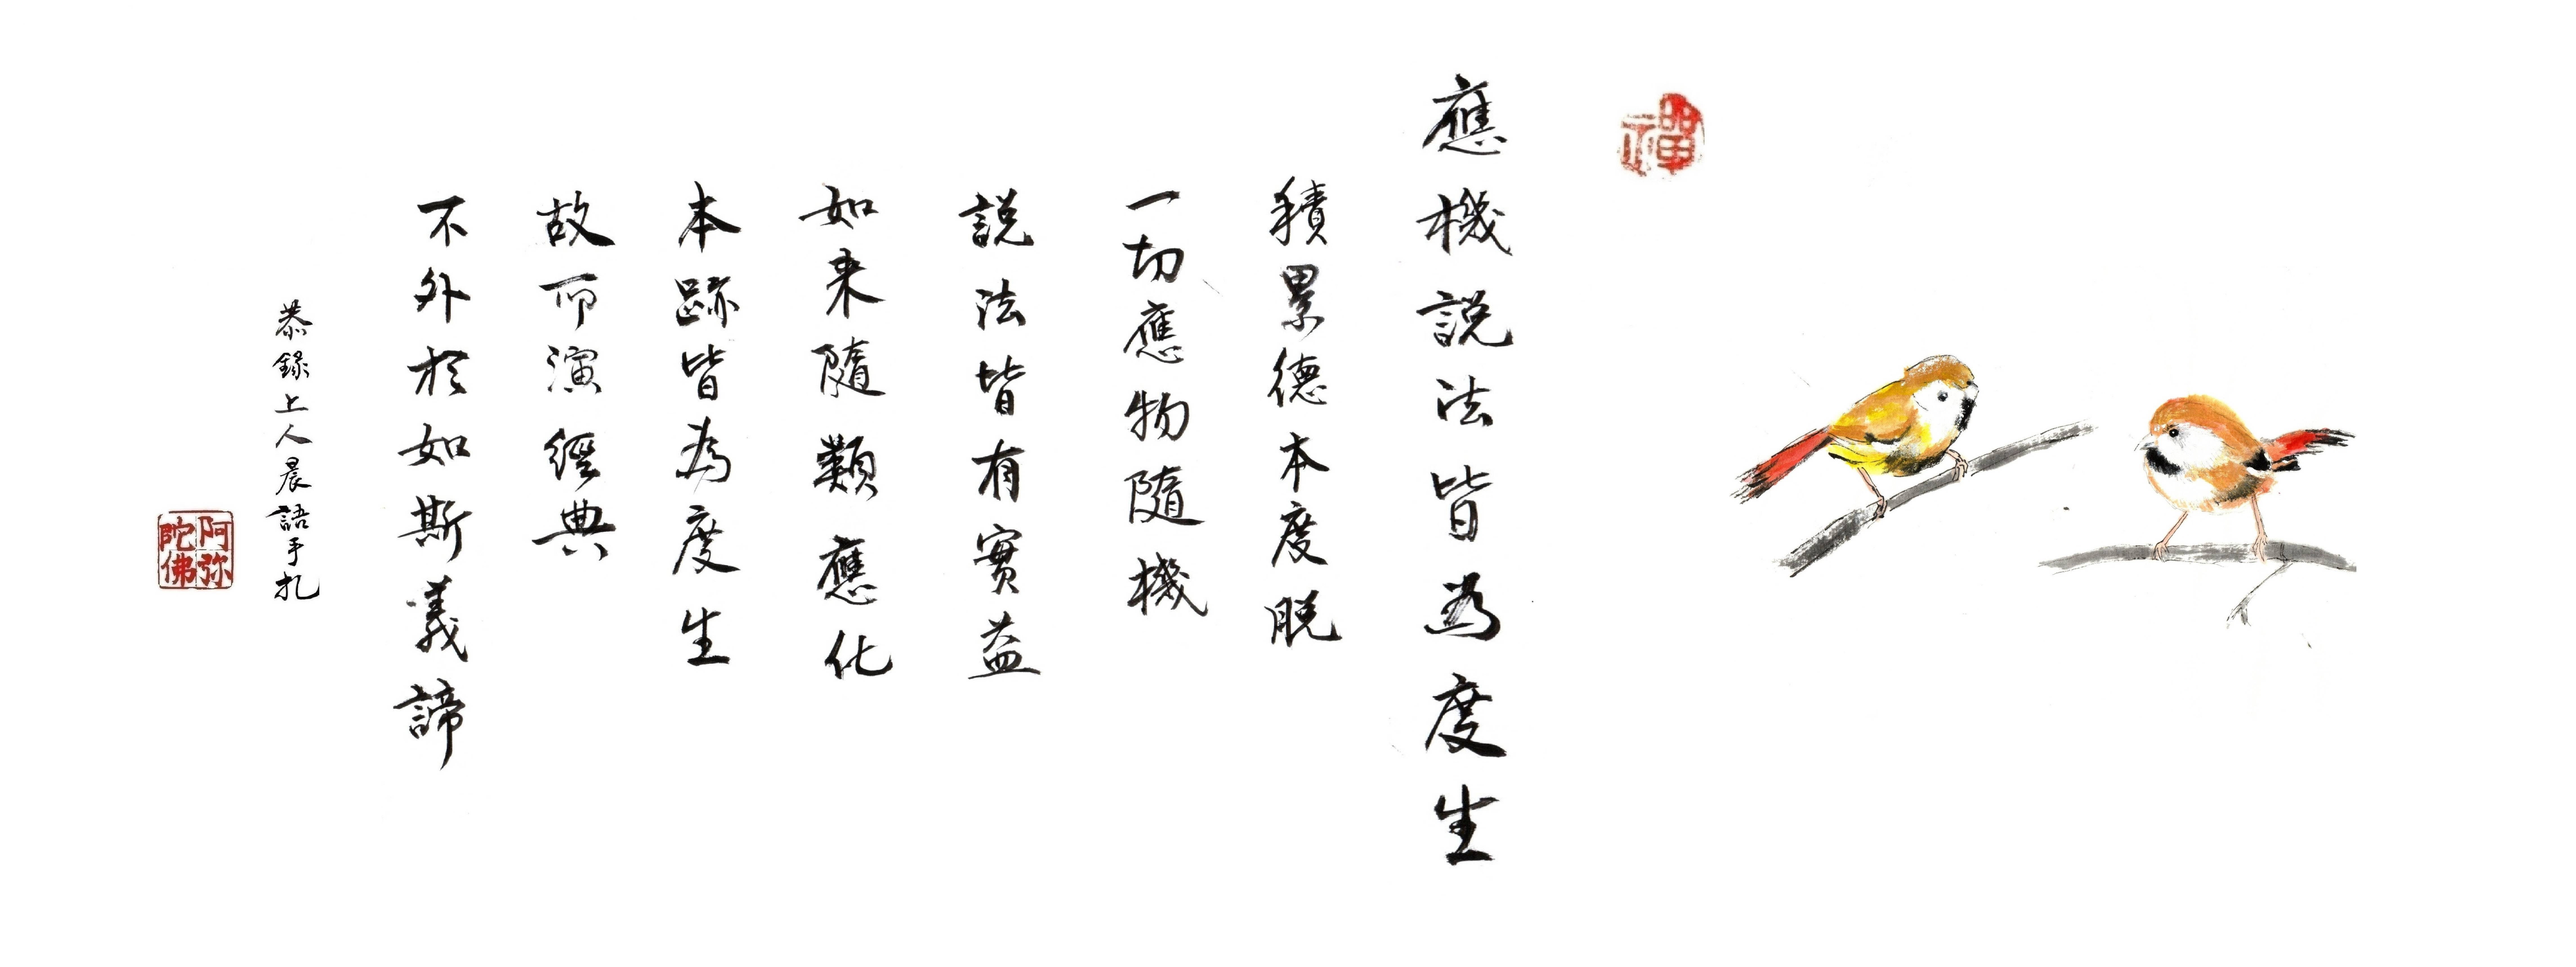 禪
應機説法皆為度生
積累德本度脱
一切應物隨機
説法皆有實益
如来隨類應化
本跡皆為度生
故而演經典
不外於如斯義諦
恭錄上人晨語手札
阿弥陀佛